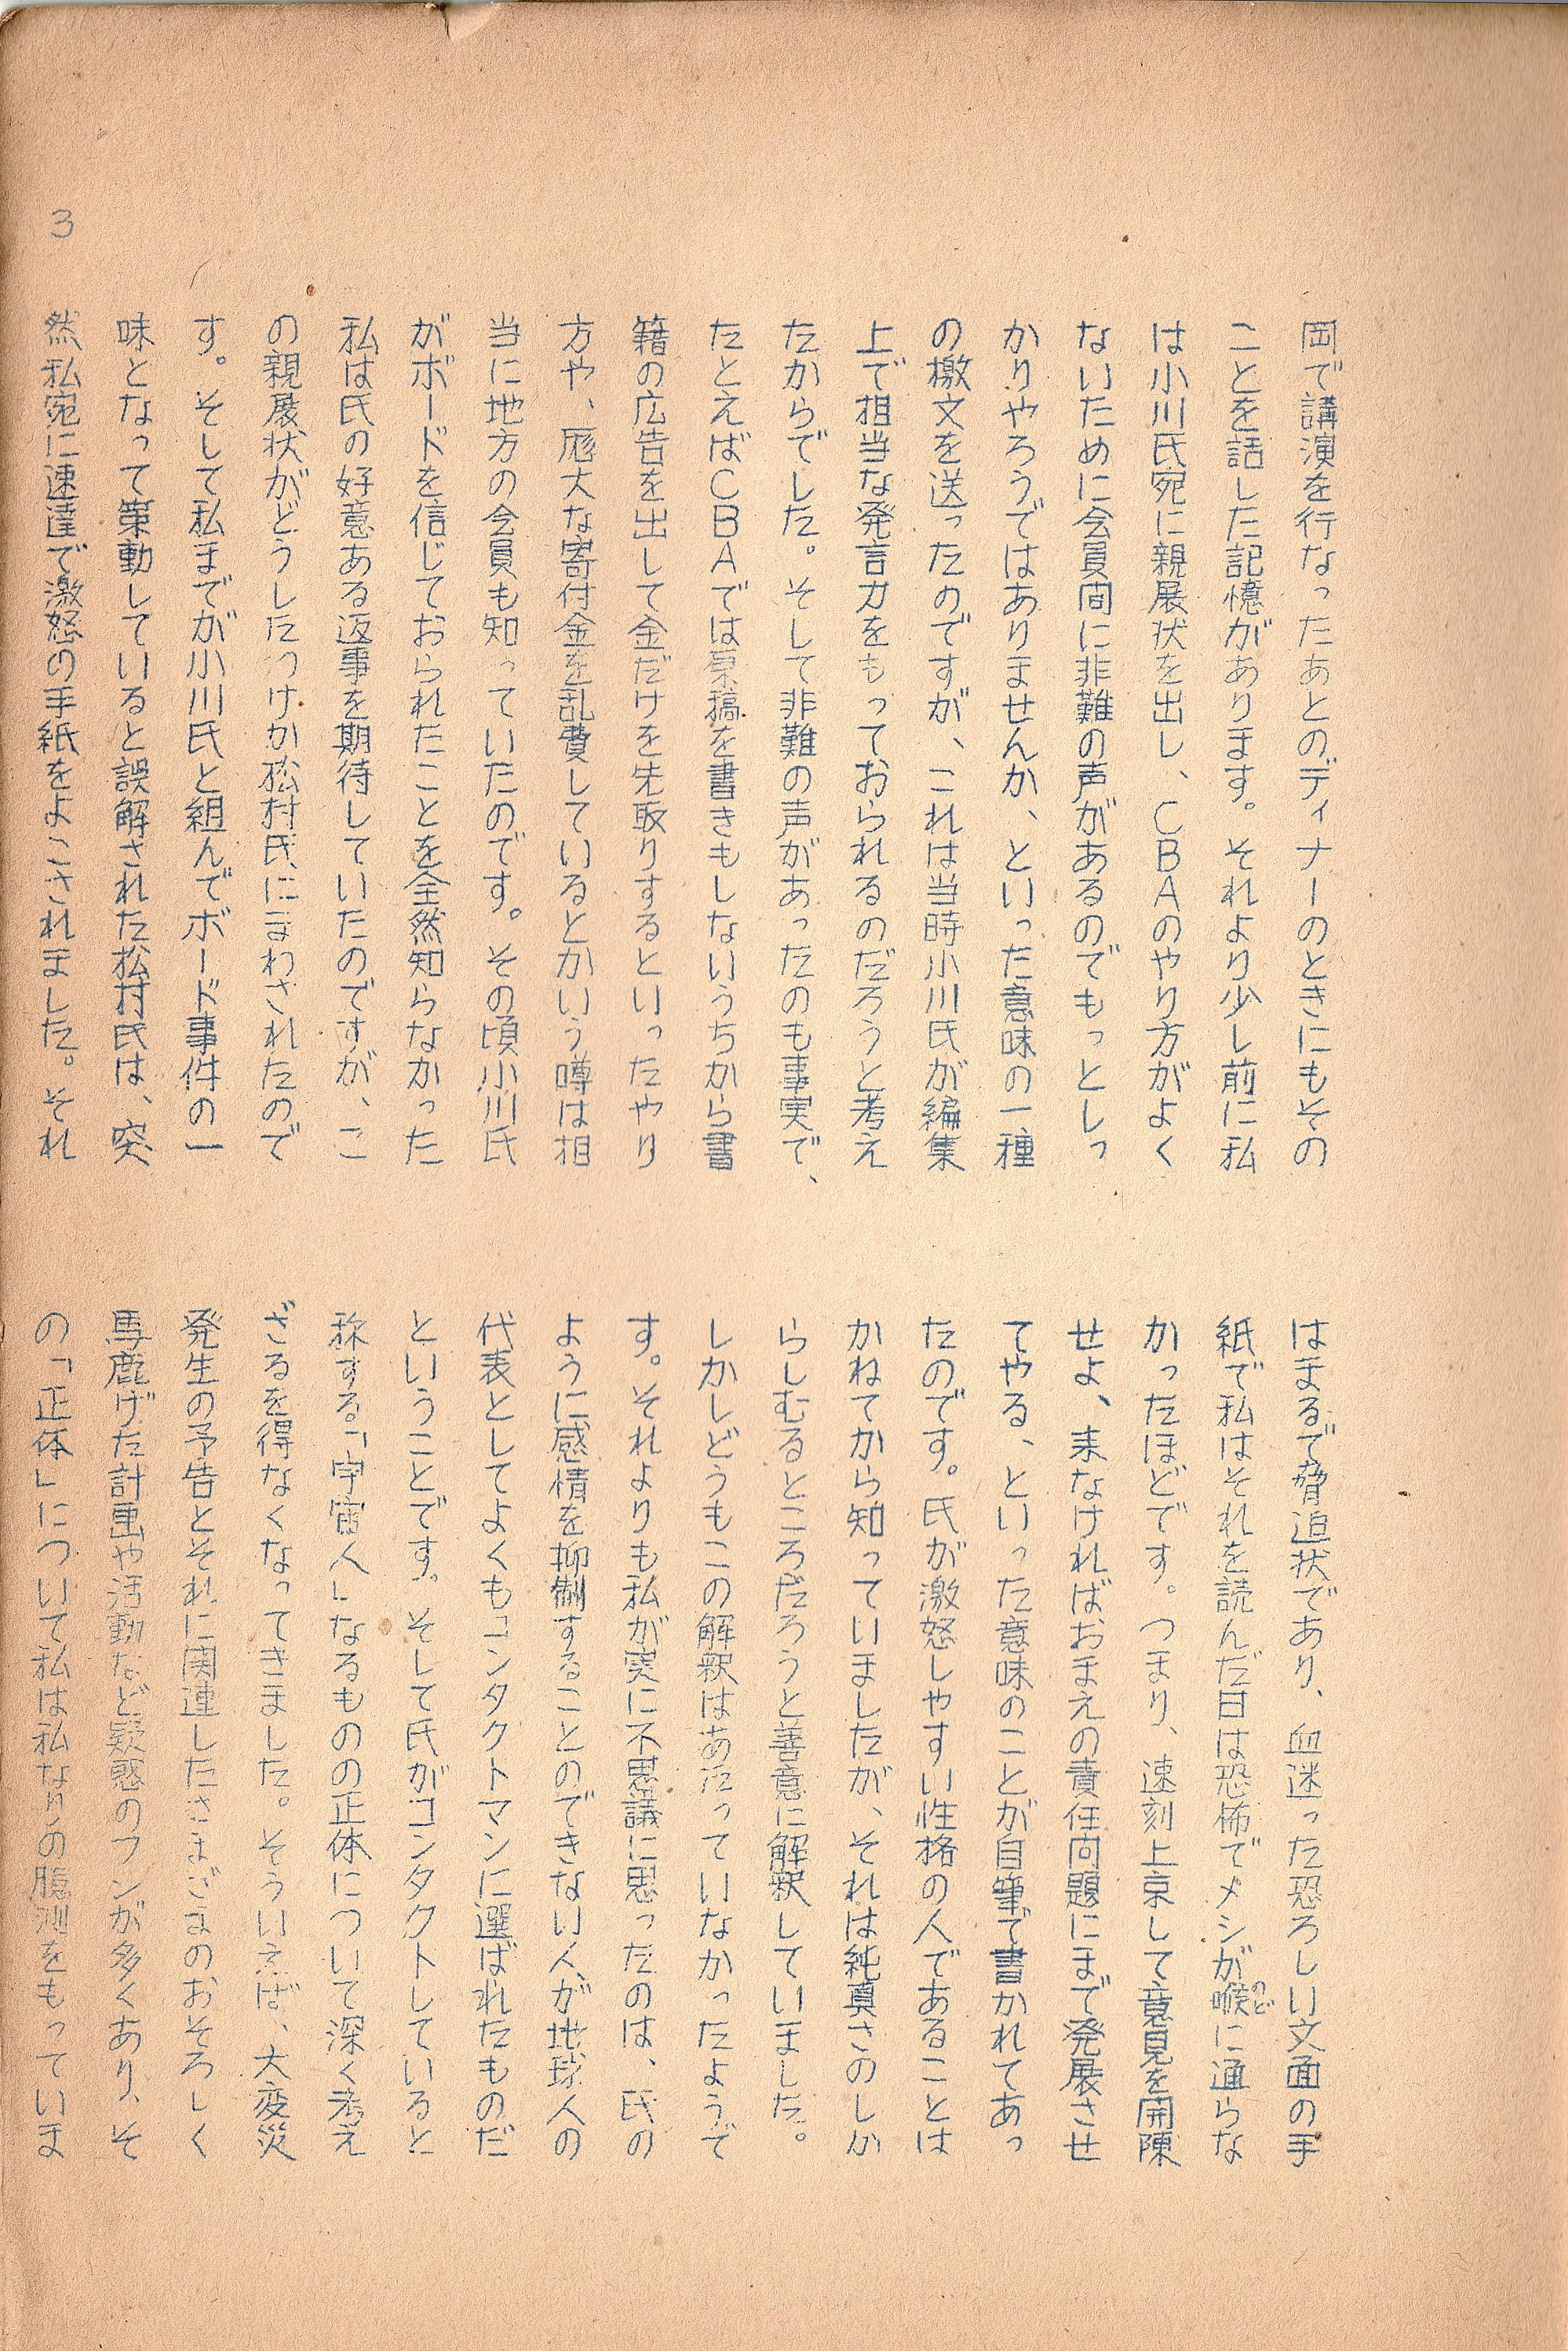 岡で講演を行なったあとのディナーのときにもその
ことを話した記憶があります。それより少し前に私
は小川氏宛に親展状を出し、CBAのやり方がよく
ないために会員間に非難の声があるのでもっとしっ
かりやろうではありませんか、といった意味の一種
の檄文を送ったのですが、これは当時小川氏が編集
上で相当な発言力をもっておられるのだろうと考え
たからでした。そして非難の声があったのも事実で、
たとえばCBAでは原稿を書きもしないうちから書
籍の広告を出して金だけを先取りするといったやり
方や、厖大な寄付金を乱費しているとかいう噂は相
当に地方の会員も知っていたのです。その頃小川氏
がボードを信じておられたことを全然知らなかった
私は氏の好意ある返事を期待していたのですが、こ
の親展状がどうしたわけか松村氏にまわされたので
す。そして私までが小川氏と組んでボード事件の一
味となって策動していると誤解された松村氏は、突
然私宛に速達で激怒の手紙をよこされました。それ
はまるで脅迫状であり、血迷った恐ろしい文面の手
紙で私はそれを読んだ日は恐怖でメシが喉に通らな
のど
かったほどです。つまり、速刻上京して意見を開陳
せよ、来なければおまえの責任問題にまで発展させ
てやる、といった意味のことが自筆で書かれてあっ
たのです。氏が激怒しやすい性格の人であることは
かねてから知っていましたが、それは純真さのしか
らしむるところだろうと善意に解釈していました。
しかしどうもこの解釈はあたっていなかったようで
す。それよりも私が実に不思議に思ったのは、氏の
ように感情を抑制することのできない人が地球人の
代表としてよくもコンタクトマンに選ばれたものだ
ということです。そして氏がコンタクトしていると
称する「宇宙人」なるものの正体について深く考え
ざるを得なくなってきました。そういえば、大変災
発生の予告とそれに関連したさまざまのおそろしく
馬鹿げた計画や活動など疑惑のフンが多くあり、そ
の「正体」について私は私なりの臆測をもっていま
3